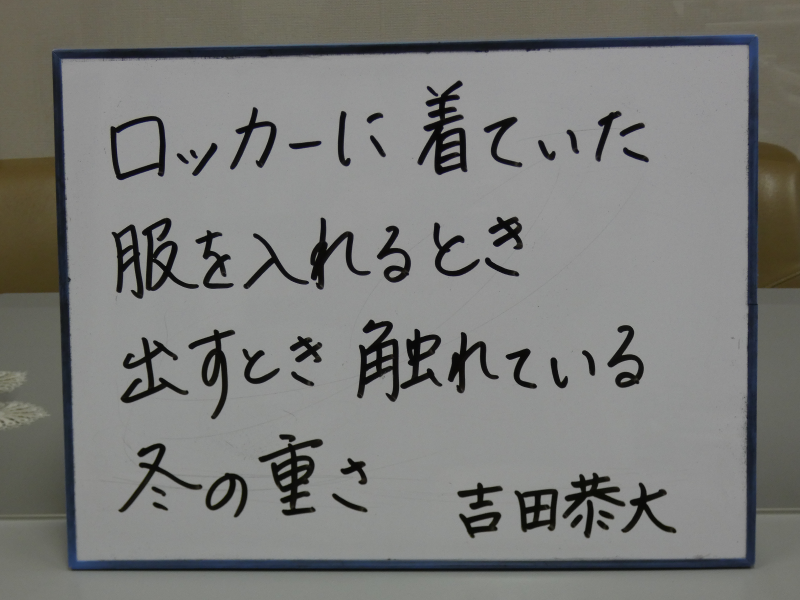 ロッカーに着ていた
服を入れるとき
出すとき触れている
冬の重さ
吉田恭大